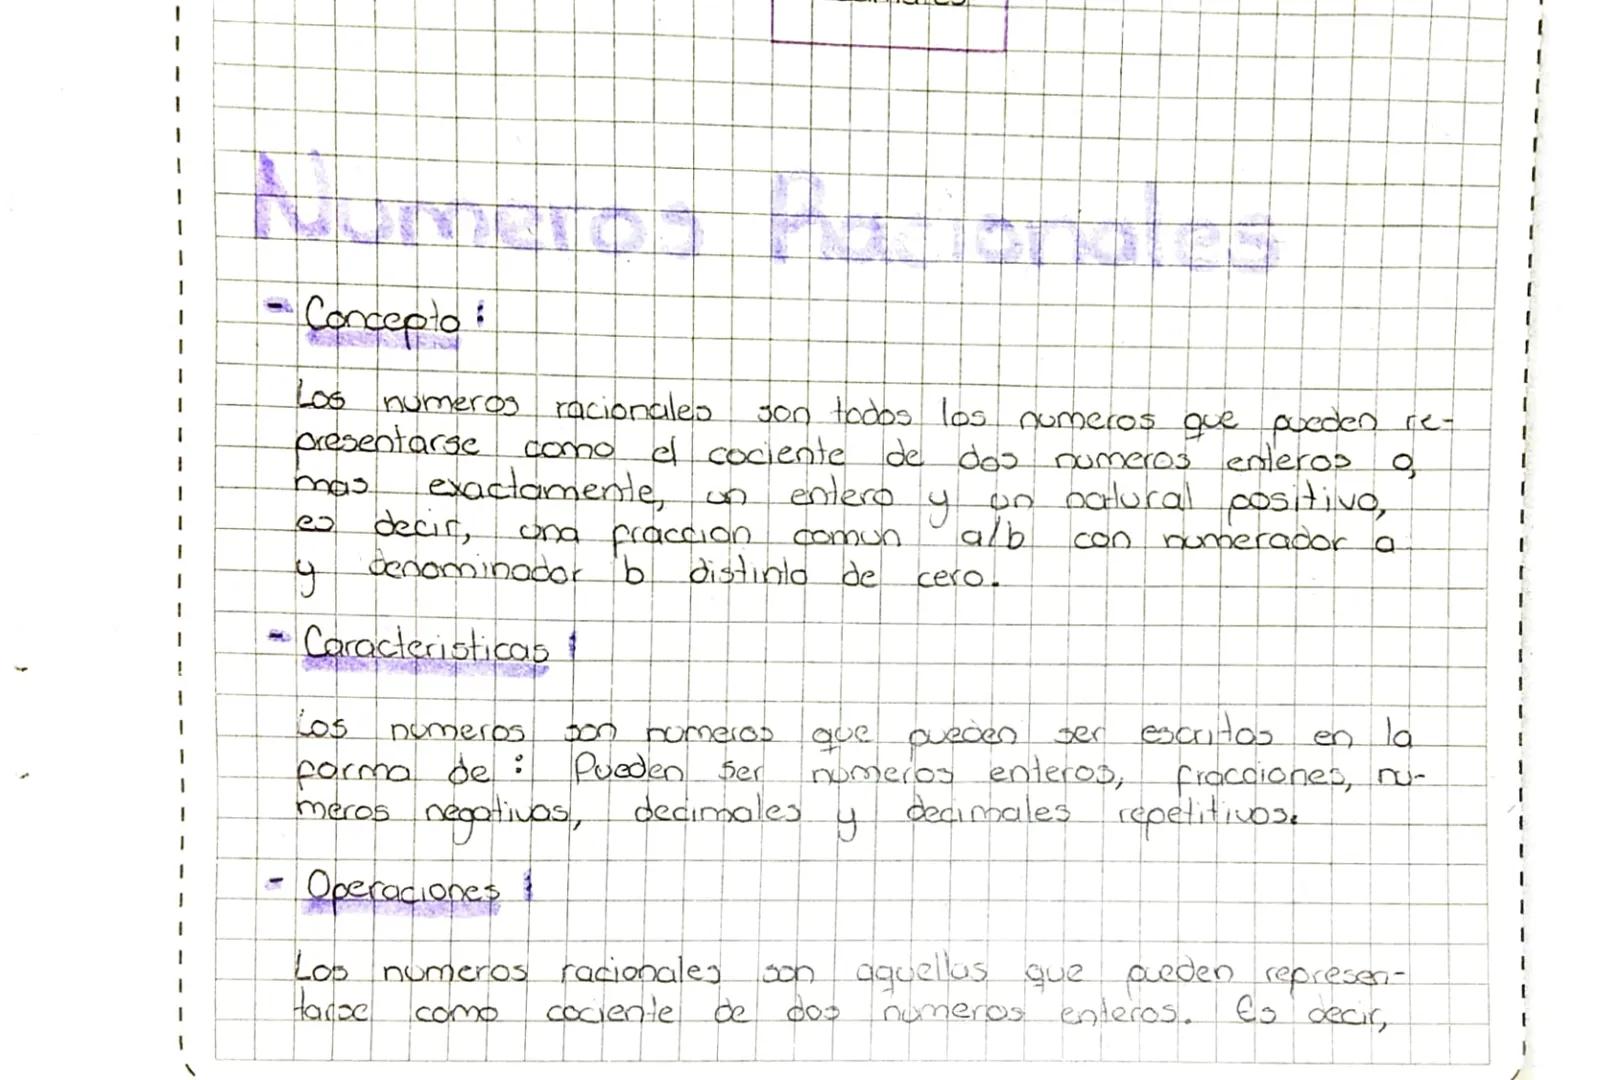 Numeros Racionales
- Concepto:
Los numeros racionales son todos los numeros que pueden re-
presentarse como el cociente de dos numeros enteros o,
mas exactamente, un entero y un natural positivo,
es decir, una fraccion comun a/b con numerador a
y denominador b distinto de cero.
- Caracteristicas:
Los numeros son numeros que pueden ser escritos en la
forma de: Pueden ser numeros enteros, fracciones, nu-
meros negativos, decimales y decimales repetitivos.
- Operaciones:
Los numeros racionales son aquellos que pueden represen-
tarse como cociente de dos numeros enteros. Es decir,